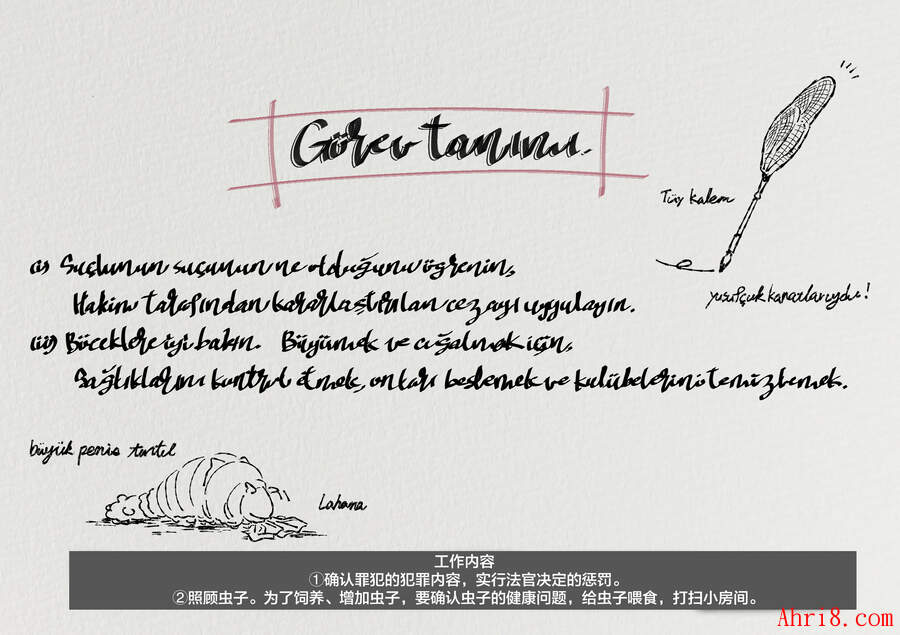 Görev tanımı.
Tüy kalem
(i) Suçlunun suçunun ne olduğunu öğrenin,
Hakim tarafından kararlaştırılan cezayı uygulayın.
yusufçuk kanatlarıydı!
(ii) Böceklere iyi bakın. Büyümek ve çoğalmak için,
Sağlıklarını kontrol etmek, onları beslemek ve kulübelerini temizlemek.
büyük penis tırtıl
Lahana
工作内容
①确认罪犯的犯罪内容，实行法官决定的惩罚。
②照顾虫子。为了饲养、增加虫子，要确认虫子的健康问题，给虫子喂食，打扫小房间。
Ahri8.com